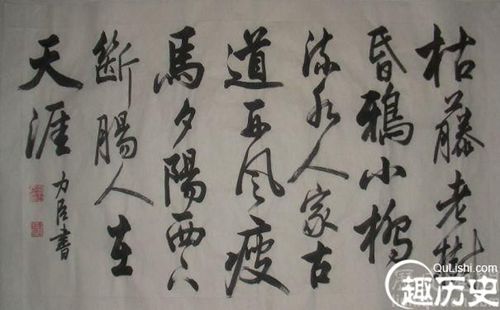 枯藤老樹
昏鴉小橋
流水人家古
道西风瘦
馬夕陽西下
斷腸人在
天涯
書
QuLishi.com
趣历史